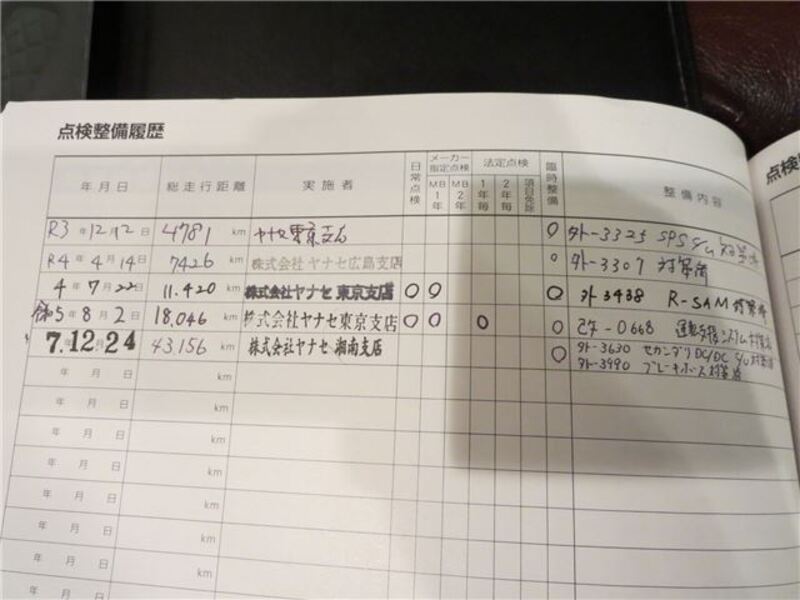 点検整備履歴
年月日 総走行距離 実施者 日常点検 メーカー指定点検 MB1年 MB2年 法定点検 1年毎 2年毎 項目免除 臨時整備 整備内容
R3年12月12日 4781 km ヤナセ東京支店 ○ 外-3325 SPS C/U 対策済
R4年4月14日 7426 km 株式会社ヤナセ広島支店 ○ 外-3307 対策済
4年7月22日 11.420 km 株式会社ヤナセ 東京支店 ○ ○ ○ 外3438 R-SAM対策済
令和5年8月2日 18,046 km 株式会社ヤナセ東京支店 ○ ○ ○ ○ 改-0668 運転支援システム対策済
7.12月24 43,156 km 株式会社ヤナセ 湘南支店 ○ 外-3630 セカンダリDC/DC C/U対策済
外-3990 ブレーキホース対策済
年 月 日 km
年 月 日 km
年 月 日 km
年 月 日 km
年 月 日 km
年 月 日 km
年 月 日 km
点検